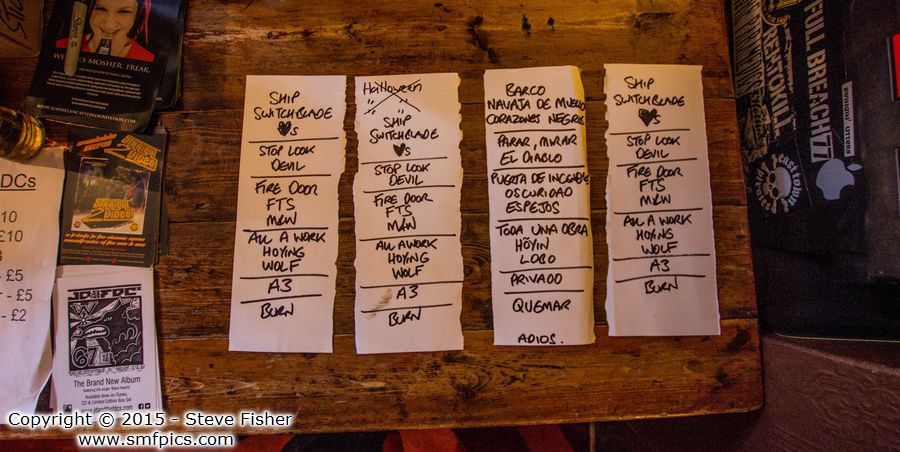 WE
O. MOSHER. FREAK.
SOPHIELANCASTERFOUNDATION.COM
DCs
10
£10
3
- £5
- £5
- £2
STRAIGHT
2
VIDEO
JD & THE FDC's
The Brand New Album
Available Now on iTunes,
CD & Limited Edition Box Set
SHIP
SWITCHBLADE
♥s
STOP LOOK
DEVIL
FIRE DOOR
FTS
M&N
ALL A WORK
HOYING
WOLF
A3
BURN
Halloween
SHIP
SWITCHBLADE
♥s
STOP LOOK
DEVIL
FIRE DOOR
FTS
M&N
ALL A WORK
HOYING
WOLF
A3
BURN
BARCO
NAVAJA DE MUELLE
CORAZONES NEGROS
PARAR, MIRAR
EL DIABLO
PUERTA DE INCENDIOS
OSCURIDAD
ESPEJOS
TODA UNA OBRA
HÖYIN
LOBO
PRIVADO
QUEMAR
ADIOS.
SHIP
SWITCHBLADE
♥s
STOP LOOK
DEVIL
FIRE DOOR
FTS
M&N
ALL A WORK
HOYING
WOLF
A3
BURN
FULL BREACH777
Copyright © 2015 - Steve Fisher
www.smfpics.com